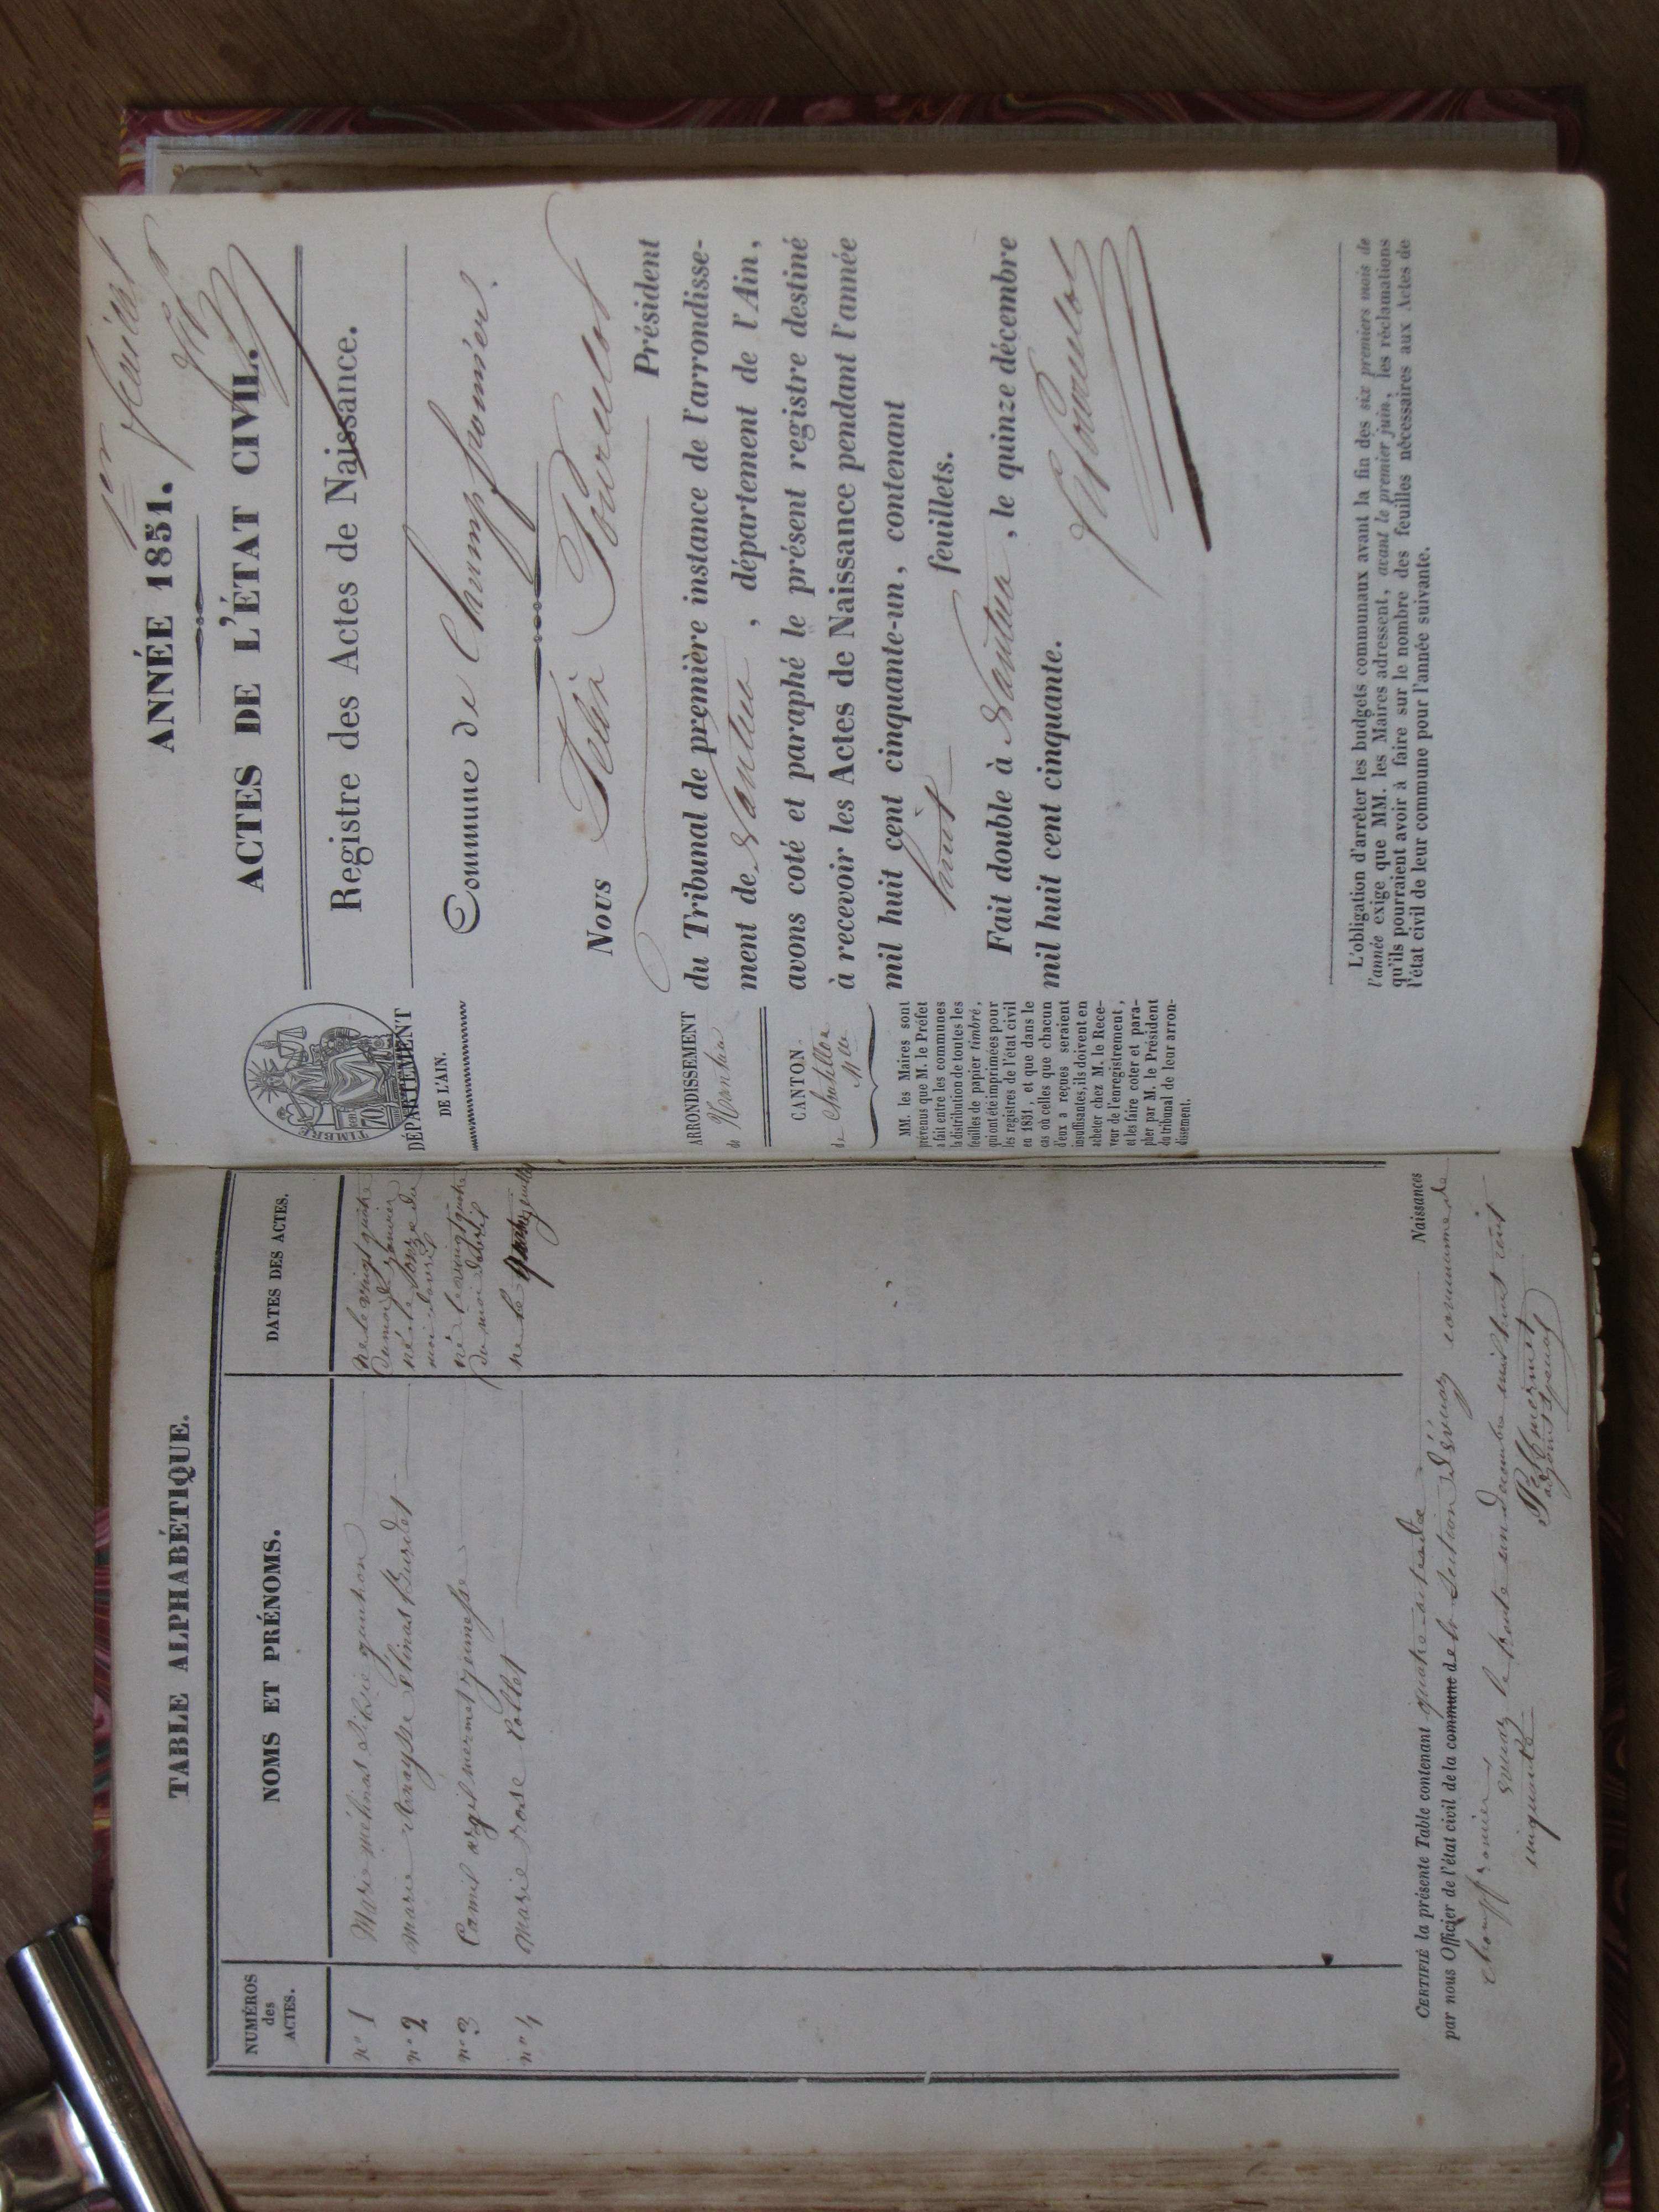 TABLE ALPHABÉTIQUE.
NUMÉROS
des
ACTES.
NOMS ET PRÉNOMS.
DATES DES ACTES.
n° 1 Marie
né le vingt quatre
du mois de janvier
n° 2 marie
née le onze du
mois d'avril
n° 3 Camil
né le vingt quatre
du mois d'avril
n° 4 marie rose Collet
né le
CERTIFIÉ la présente Table contenant quatre Naissances
par nous Officier de l'état civil de la commune de la Section d'évuaz commune de
champfromier
évuaz le trente un Decembre mil huit cent
cinquante
adjoint spécial
1er feuillet
ANNÉE 1851.
ACTES DE L'ÉTAT CIVIL.
Registre des Actes de Naissance.
TIMBRE
70
DÉPARTEMENT
DE L'AIN.
Commune de Champfromier
ARRONDISSEMENT
de Nantua
CANTON
de Chatillon
MM. les Maires sont
prévenus que M. le Préfet
a fait entre les communes
la distribution de toutes les
feuilles de papier timbré,
qui ont été imprimées pour
les registres de l'état civil
en 1851, et que dans le
cas où celles que chacun
d'eux a reçues seraient
insuffisantes, ils doivent en
acheter chez M. le Rece-
veur de l'enregistrement,
et les faire coter et para-
pher par M. le Président
du tribunal de leur arron-
dissement.
Nous
Président
du Tribunal de première instance de l'arrondisse-
ment de Nantua, département de l'Ain,
avons coté et paraphé le présent registre destiné
à recevoir les Actes de Naissance pendant l'année
mil huit cent cinquante-un, contenant
huit feuillets.
Fait double à Nantua, le quinze décembre
mil huit cent cinquante.
L'obligation d'arrêter les budgets communaux avant la fin des six premiers mois de
l'année exige que MM. les Maires adressent, avant le premier juin, les réclamations
qu'ils pourraient avoir à faire sur le nombre des feuilles nécessaires aux Actes de
l'état civil de leur commune pour l'année suivante.